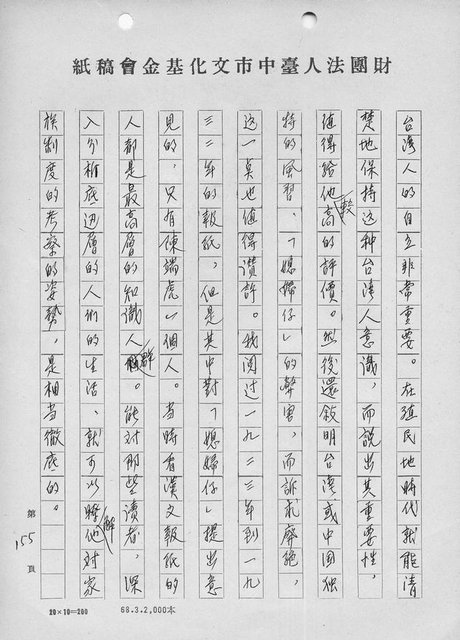 財團法人臺中市文化基金會稿紙
台湾人的自立非常重要。在殖民地時代就能清
楚地保持这种台湾人意識,而說出其重要性,
值得給他較高的評價。然後還敘明台湾或中国独
特的風習、「媳婦仔」的弊害,而訴求廃絶,
这一奌也值得讚許。我阅过一九二三年到一九
三三年的報紙,但是其中對「媳婦仔」提出意
見的,只有陳端虎一個人。當時看漢文報紙的
人都是最高層的知識人群。能对那些读者,深
入分析底边層的人們的生活、就可以瞭解他对家
族制度的考察的姿勢,是相当徹底的。
第155頁
20×10=200 68.3.2,000本